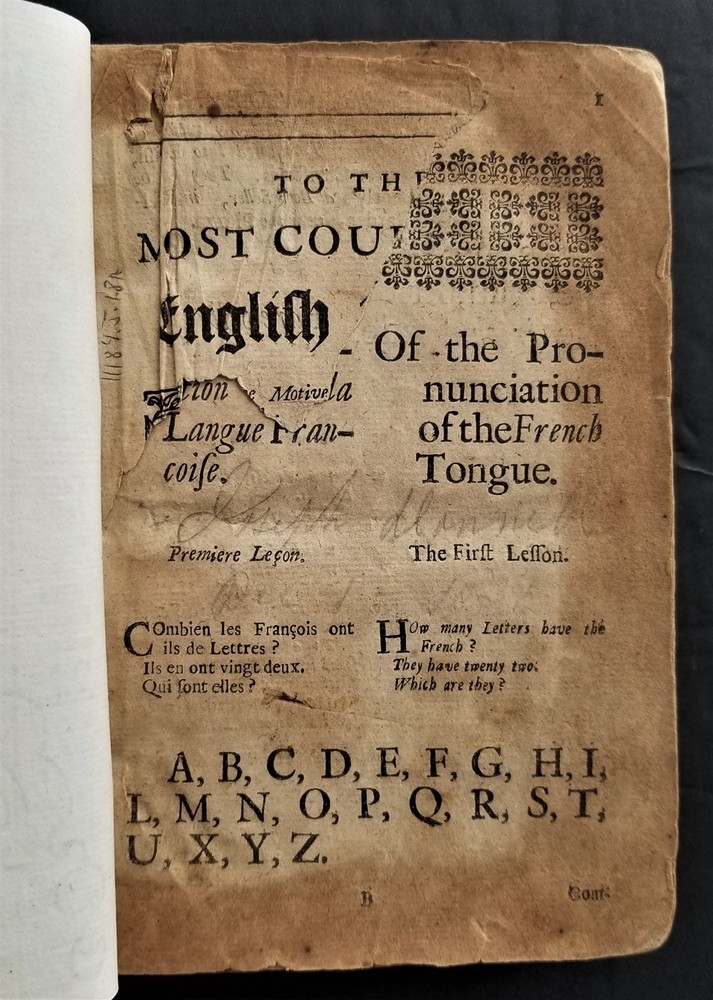 I
TO THE
MOST COU
Engliſh
tion e Motivela
Langue Fran-
coiſe.
Of the Pro-
nunciation
of the French
Tongue.
Joseph
Premiere Leçon.
The Firſt Leſſon.
COmbien les François ont
ils de Lettres ?
Ils en ont vingt deux.
Qui ſont elles ?
HOw many Letters have the
French ?
They have twenty two.
Which are they ?
A, B, C, D, E, F, G, H, I,
L, M, N, O, P, Q, R, S, T,
U, X, Y, Z.
B
Con-